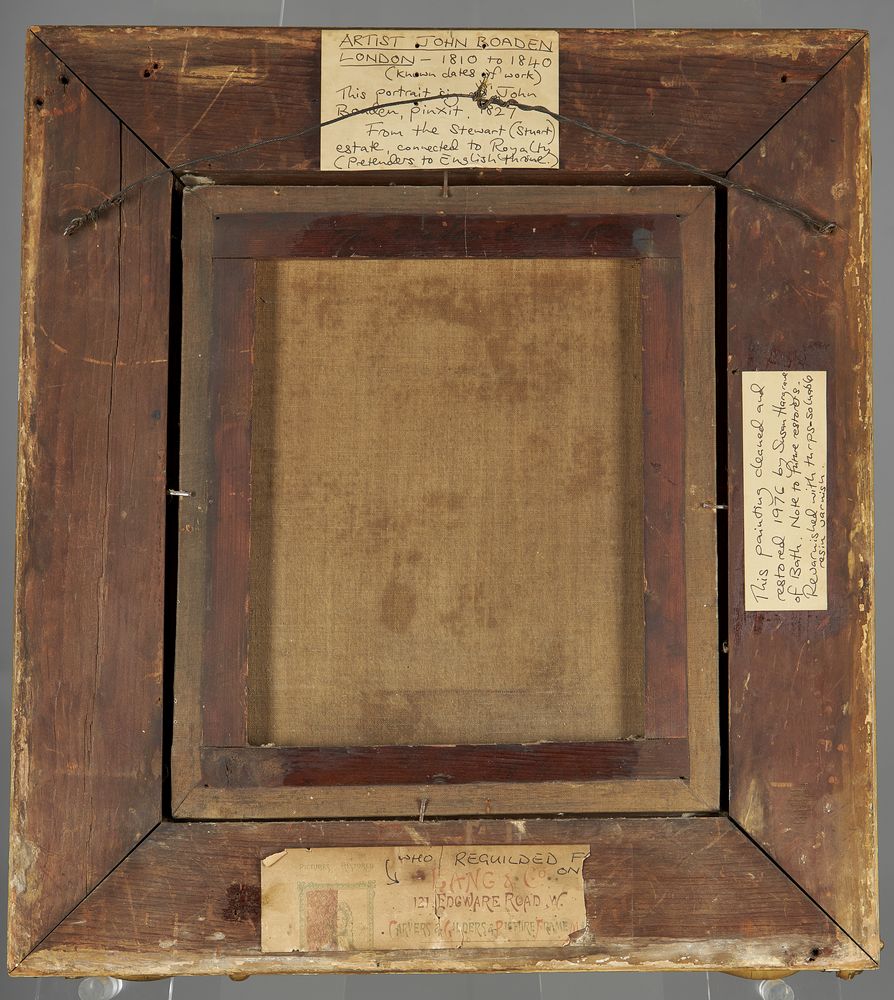 ARTIST JOHN BOADEN
LONDON - 1810 to 1840
(known dates of work)
This portrait sig John
Boaden, pinxit. 1827
From the Stewart (Stuart)
estate, connected to Royalty
(Pretenders to English throne.
This painting cleaned and
restored 1976 by Susan Hargrave
of Bath. Note to future restorers.
Revarnished with turps-soluable
resin varnish.
PICTURES RESTORED
WHO REGUILDED F
ON
LANG & Co.
121, EDGWARE ROAD, W.
CARVERS & GILDERS & PICTURE FRAME